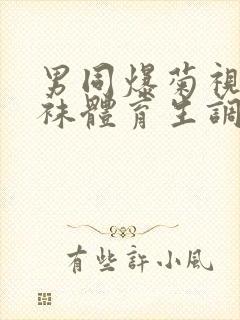 男同爆菊視
袜體育生調
有些許小風